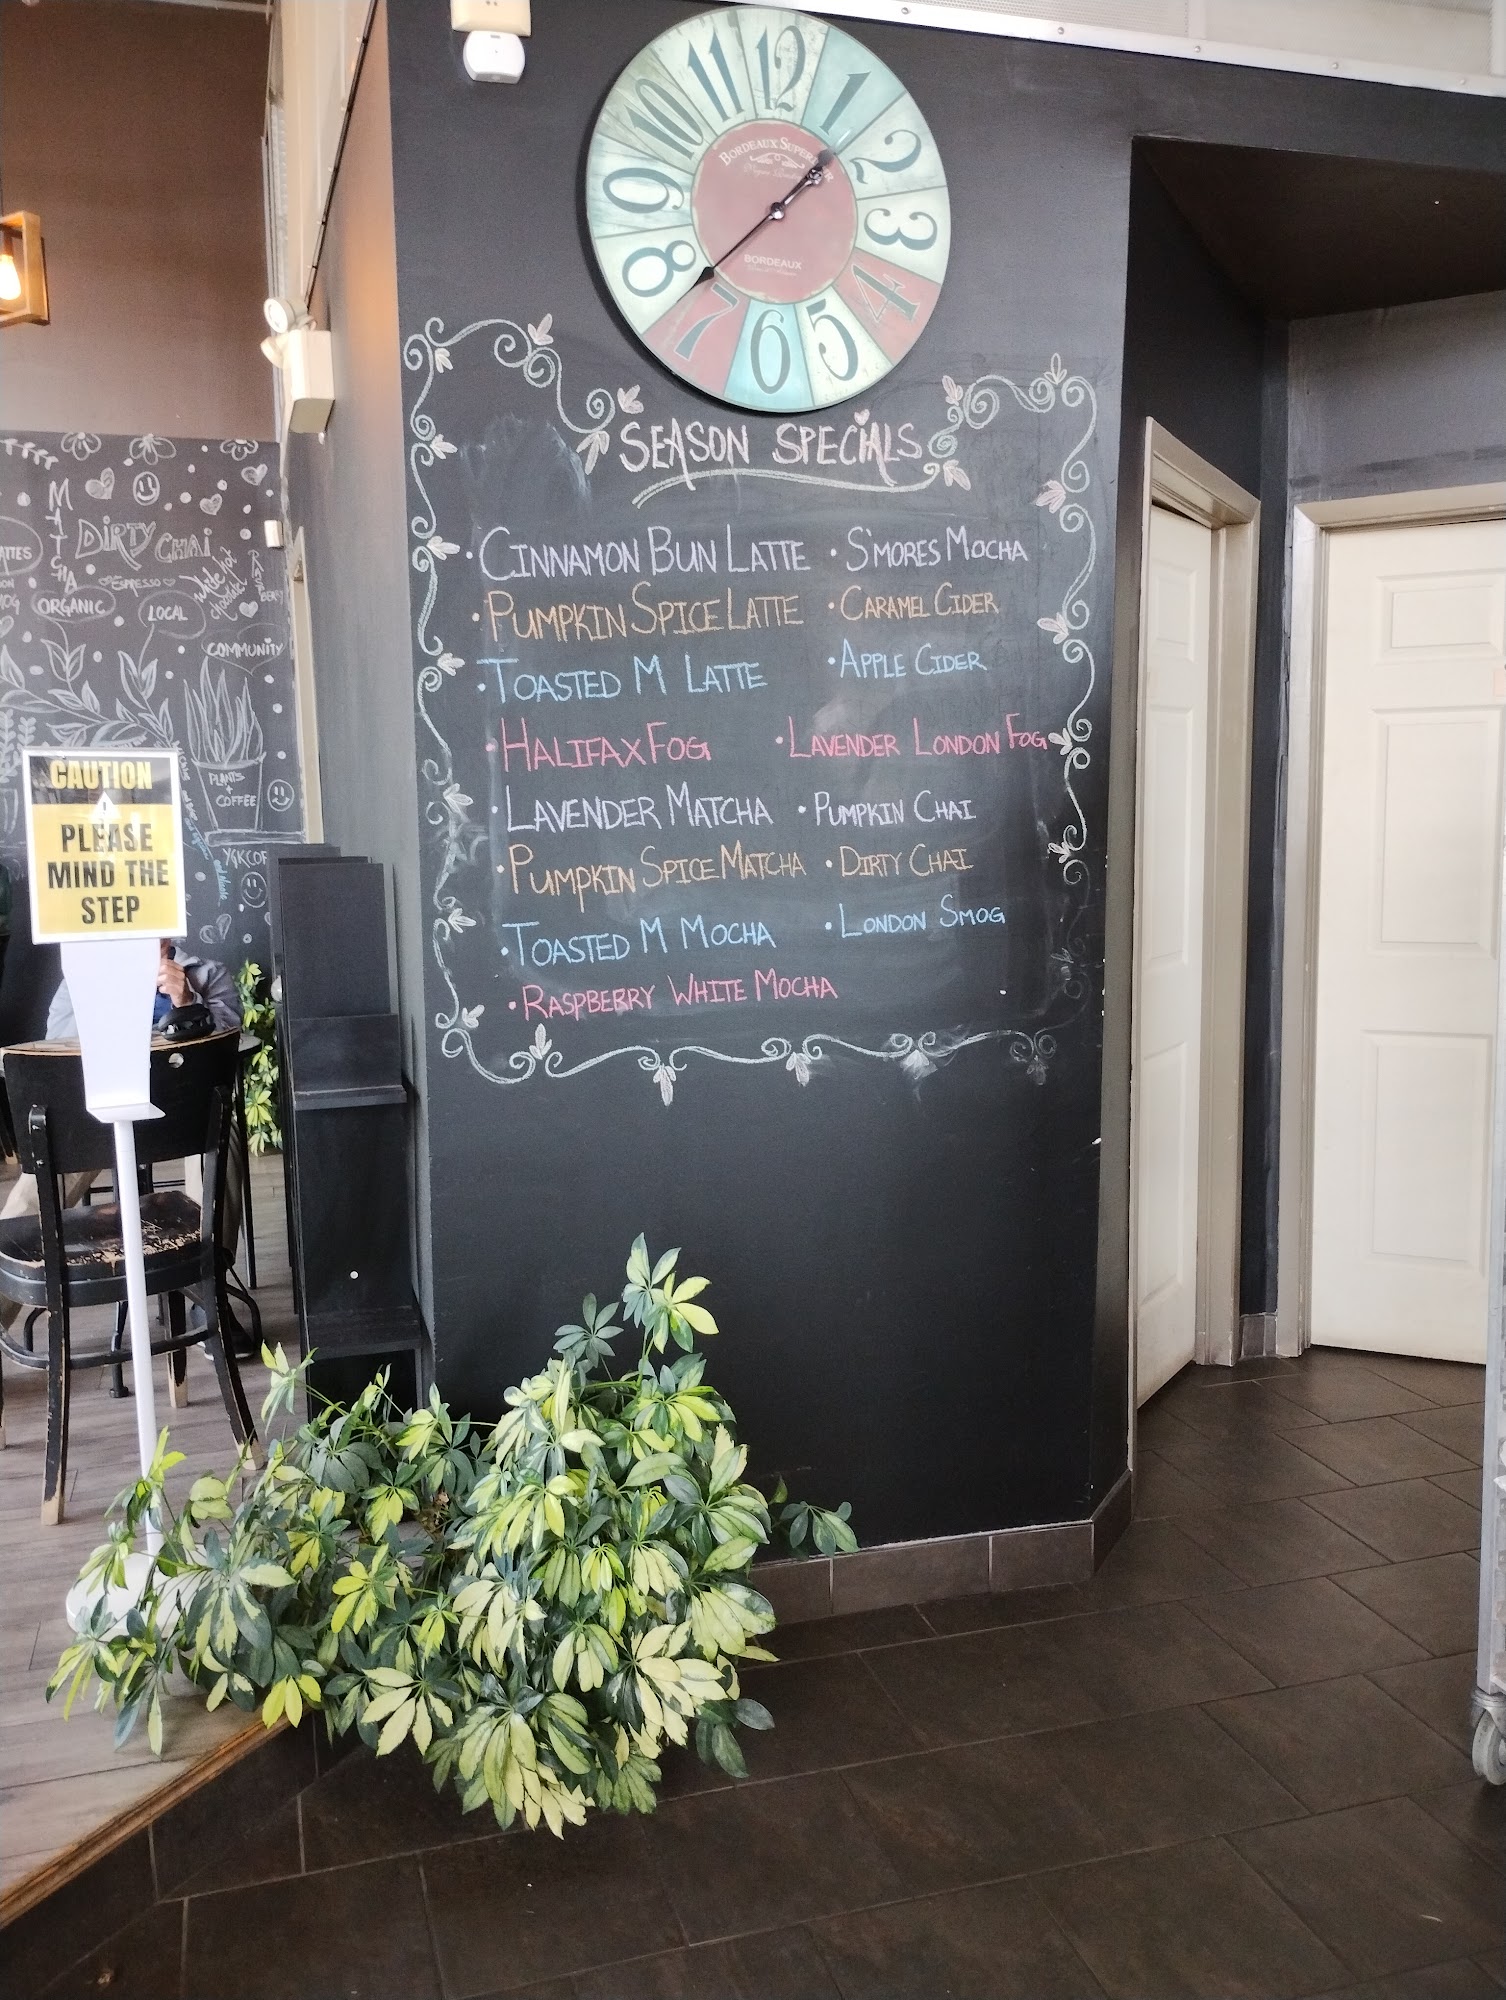 12
1
2
3
4
5
6
7
8
9
10
11
BORDEAUX
BORDEAUX
SEASON SPECIALS
• CINNAMON BUN LATTE • S'MORES MOCHA
• PUMPKIN SPICE LATTE • CARAMEL CIDER
• TOASTED M LATTE • APPLE CIDER
• HALIFAX FOG • LAVENDER LONDON FOG
• LAVENDER MATCHA • PUMPKIN CHAI
• PUMPKIN SPICE MATCHA • DIRTY CHAI
• TOASTED M MOCHA • LONDON SMOG
• RASPBERRY WHITE MOCHA
MATCHA
DIRTY CHAI
ESPRESSO
white hot
chocolate
ORGANIC
LOCAL
COMMUNITY
PLANTS
+
COFFEE
CAUTION
!
PLEASE
MIND THE
STEP